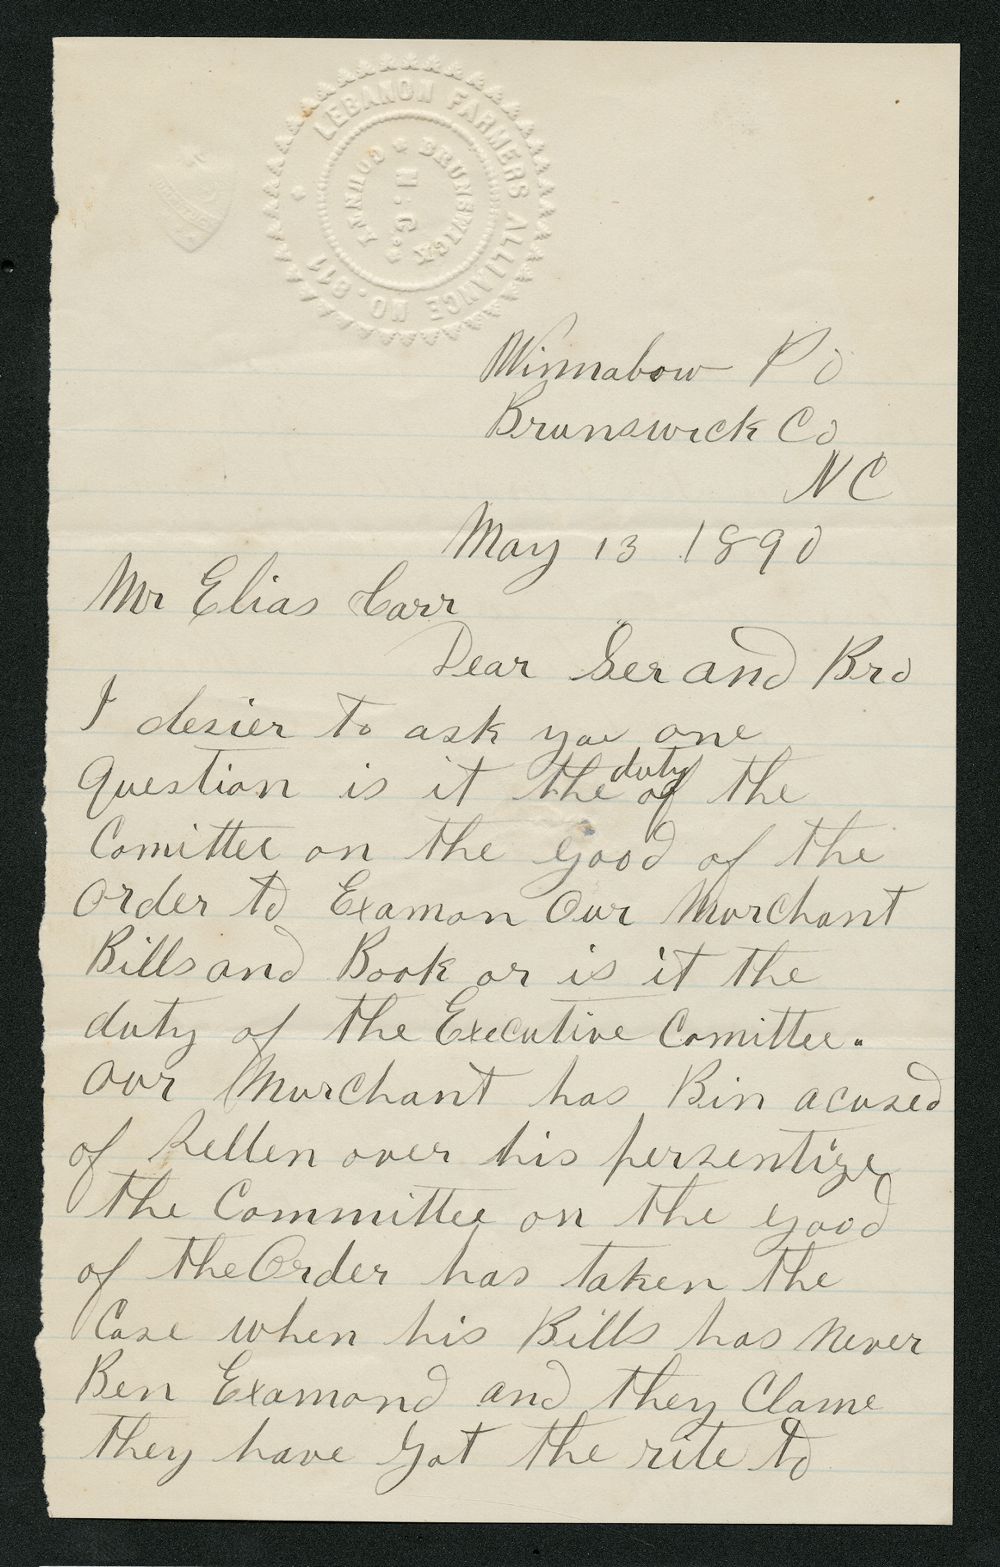 LEBANON FARMERS ALLIANCE NO. 911
BRUNSWICK COUNTY
N.C.
Winnabow P O
Brunswick Co
N C
May 13 1890
Mr Elias Carr
Dear Ser and Bro
I desier to ask you one
Question is it the duty of the
Comittee on the good of the
order to Examon Our Murchant
Bills and Book or is it the
duty of the Executive Comittee.
our Murchant has Bin acused
of Sellen over his persentize
the Committee on the good
of the Order has taken the
Case when his Bills has never
Ben Examond and they Clame
they have got the rite to